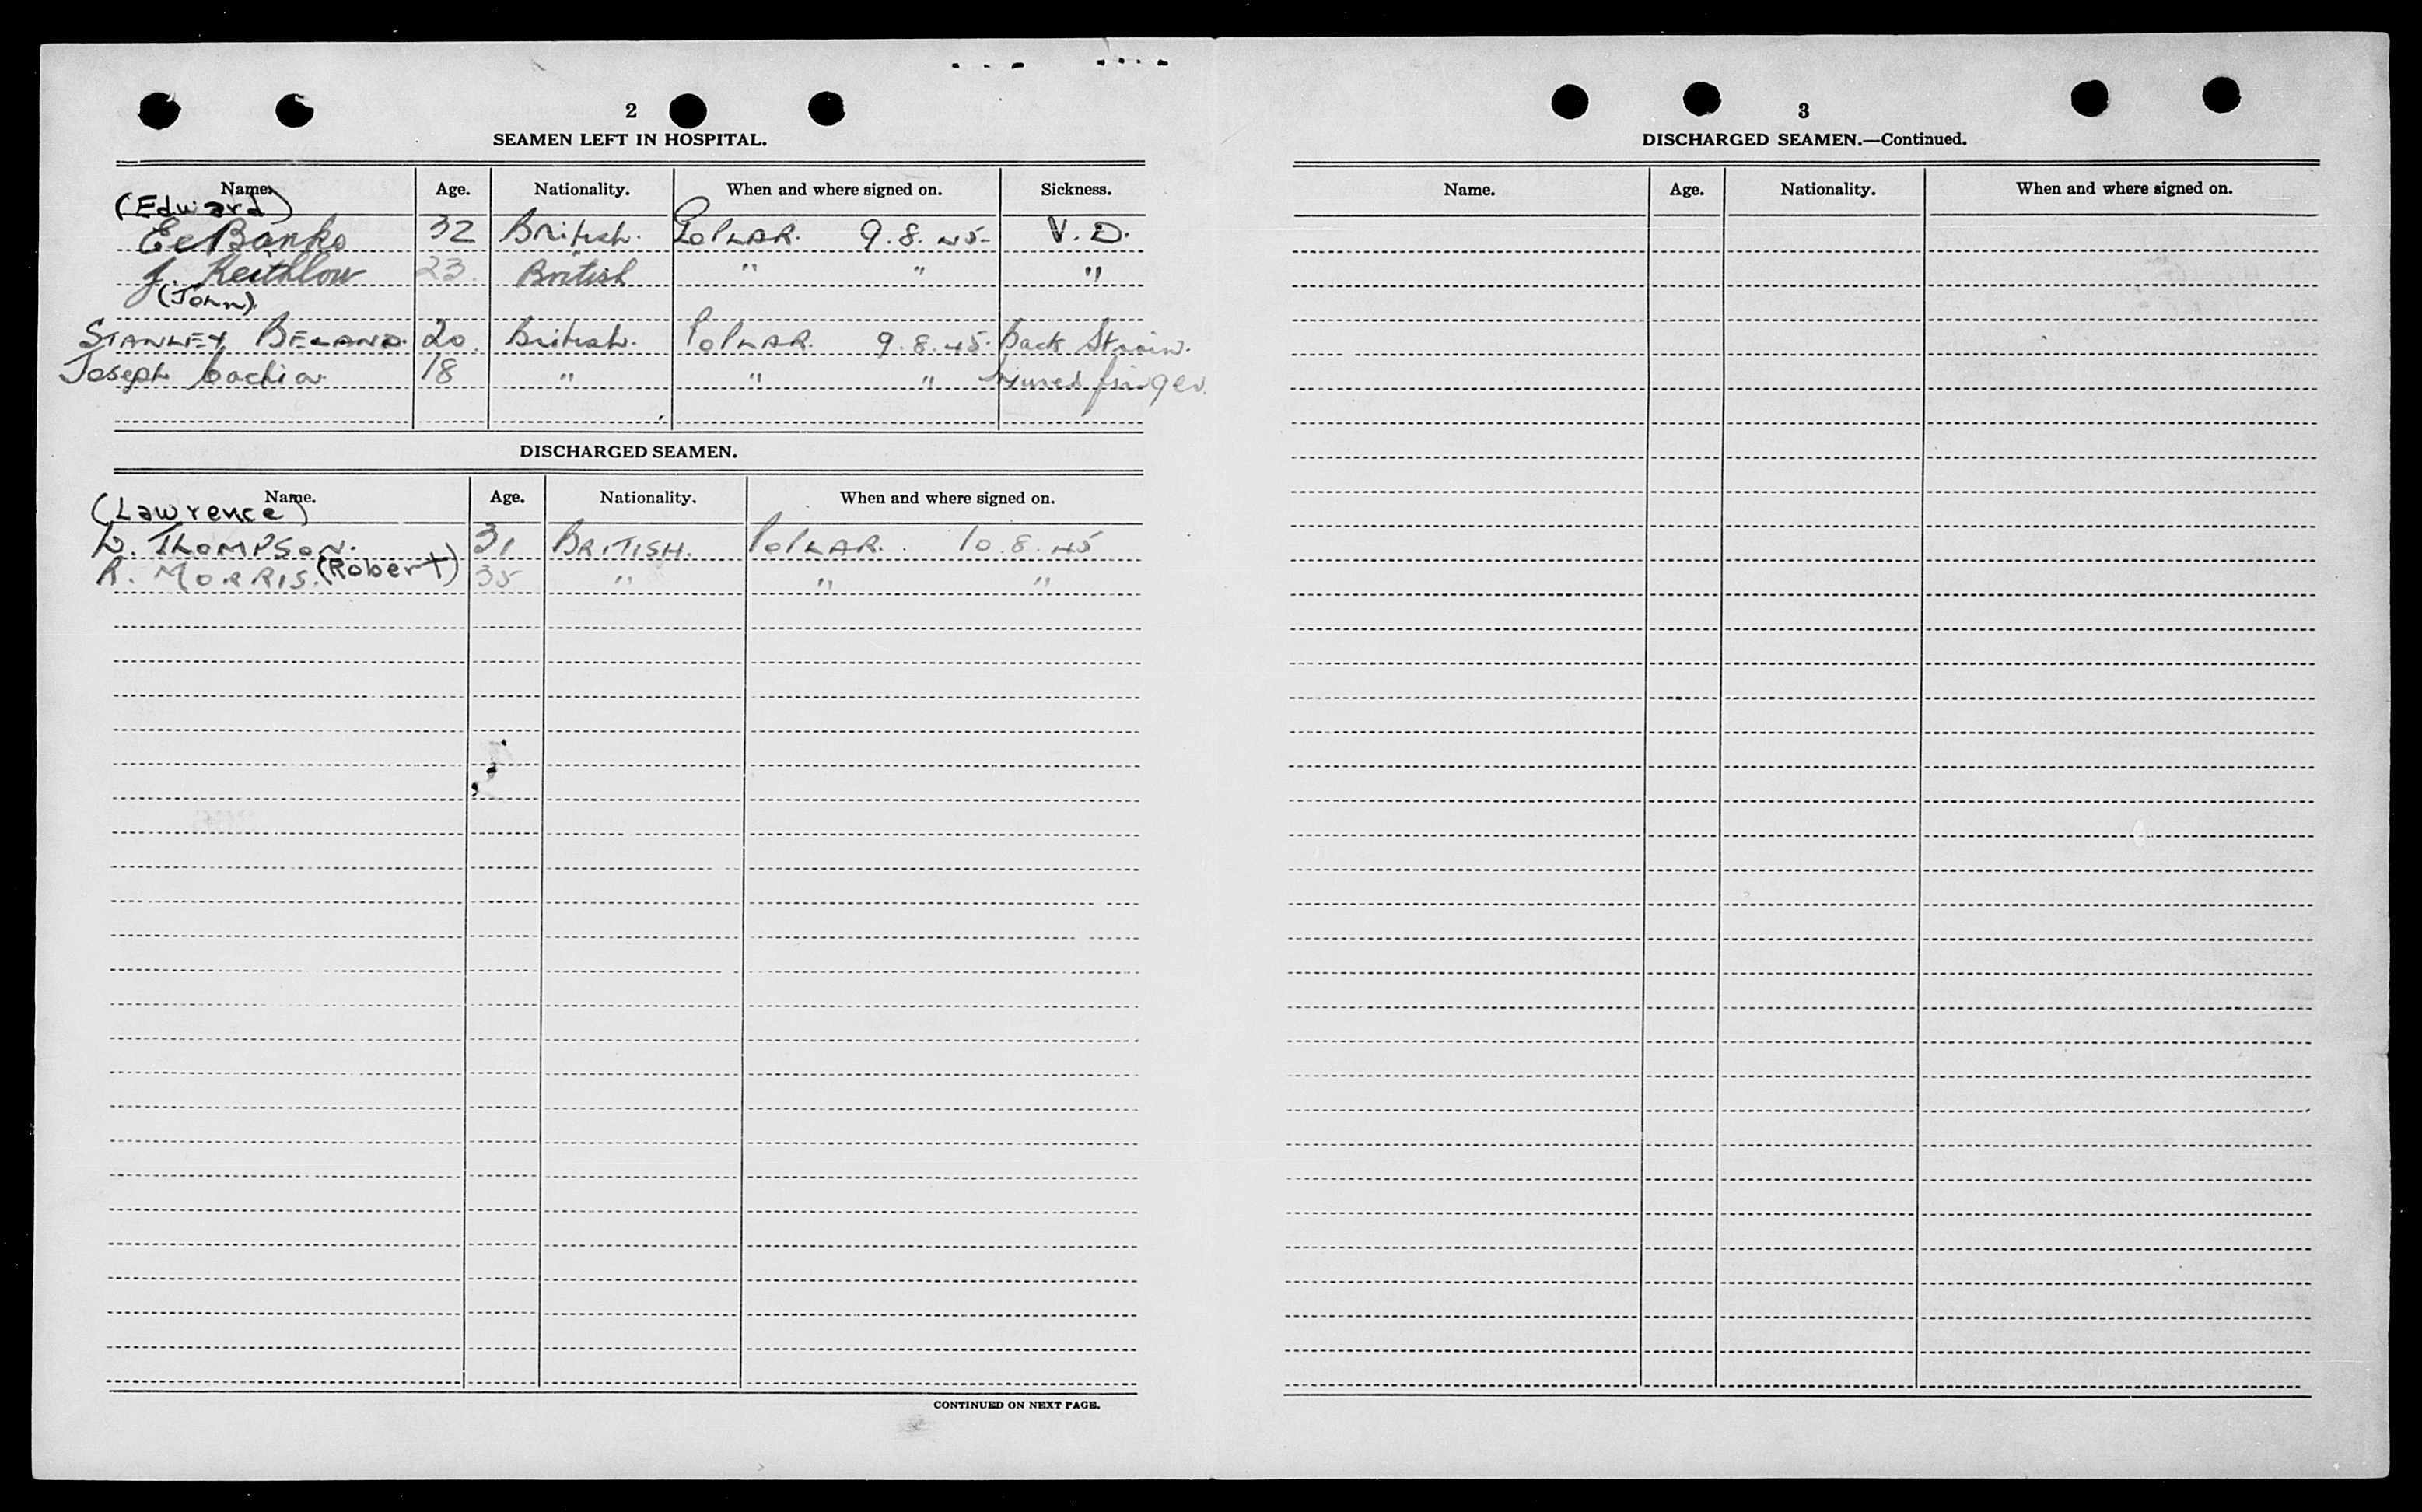 2
SEAMEN LEFT IN HOSPITAL.
Name. Age. Nationality. When and where signed on. Sickness.
(Edward)
E. Banks 32 British. POPLAR. 9.8.45- V.D.
J. Keithlow 23. British " " "
(John).
STANLEY BELAND. 20. British. POPLAR. 9.8.45. Back Strain.
Joseph Cachia 18 " " " injured finger.
DISCHARGED SEAMEN.
Name. Age. Nationality. When and where signed on.
(Lawrence)
L. THOMPSON. 31 BRITISH. POPLAR. 10.8.45
R. MORRIS. (Robert) 35 " " "
CONTINUED ON NEXT PAGE.
3
DISCHARGED SEAMEN.—Continued.
Name. Age. Nationality. When and where signed on.